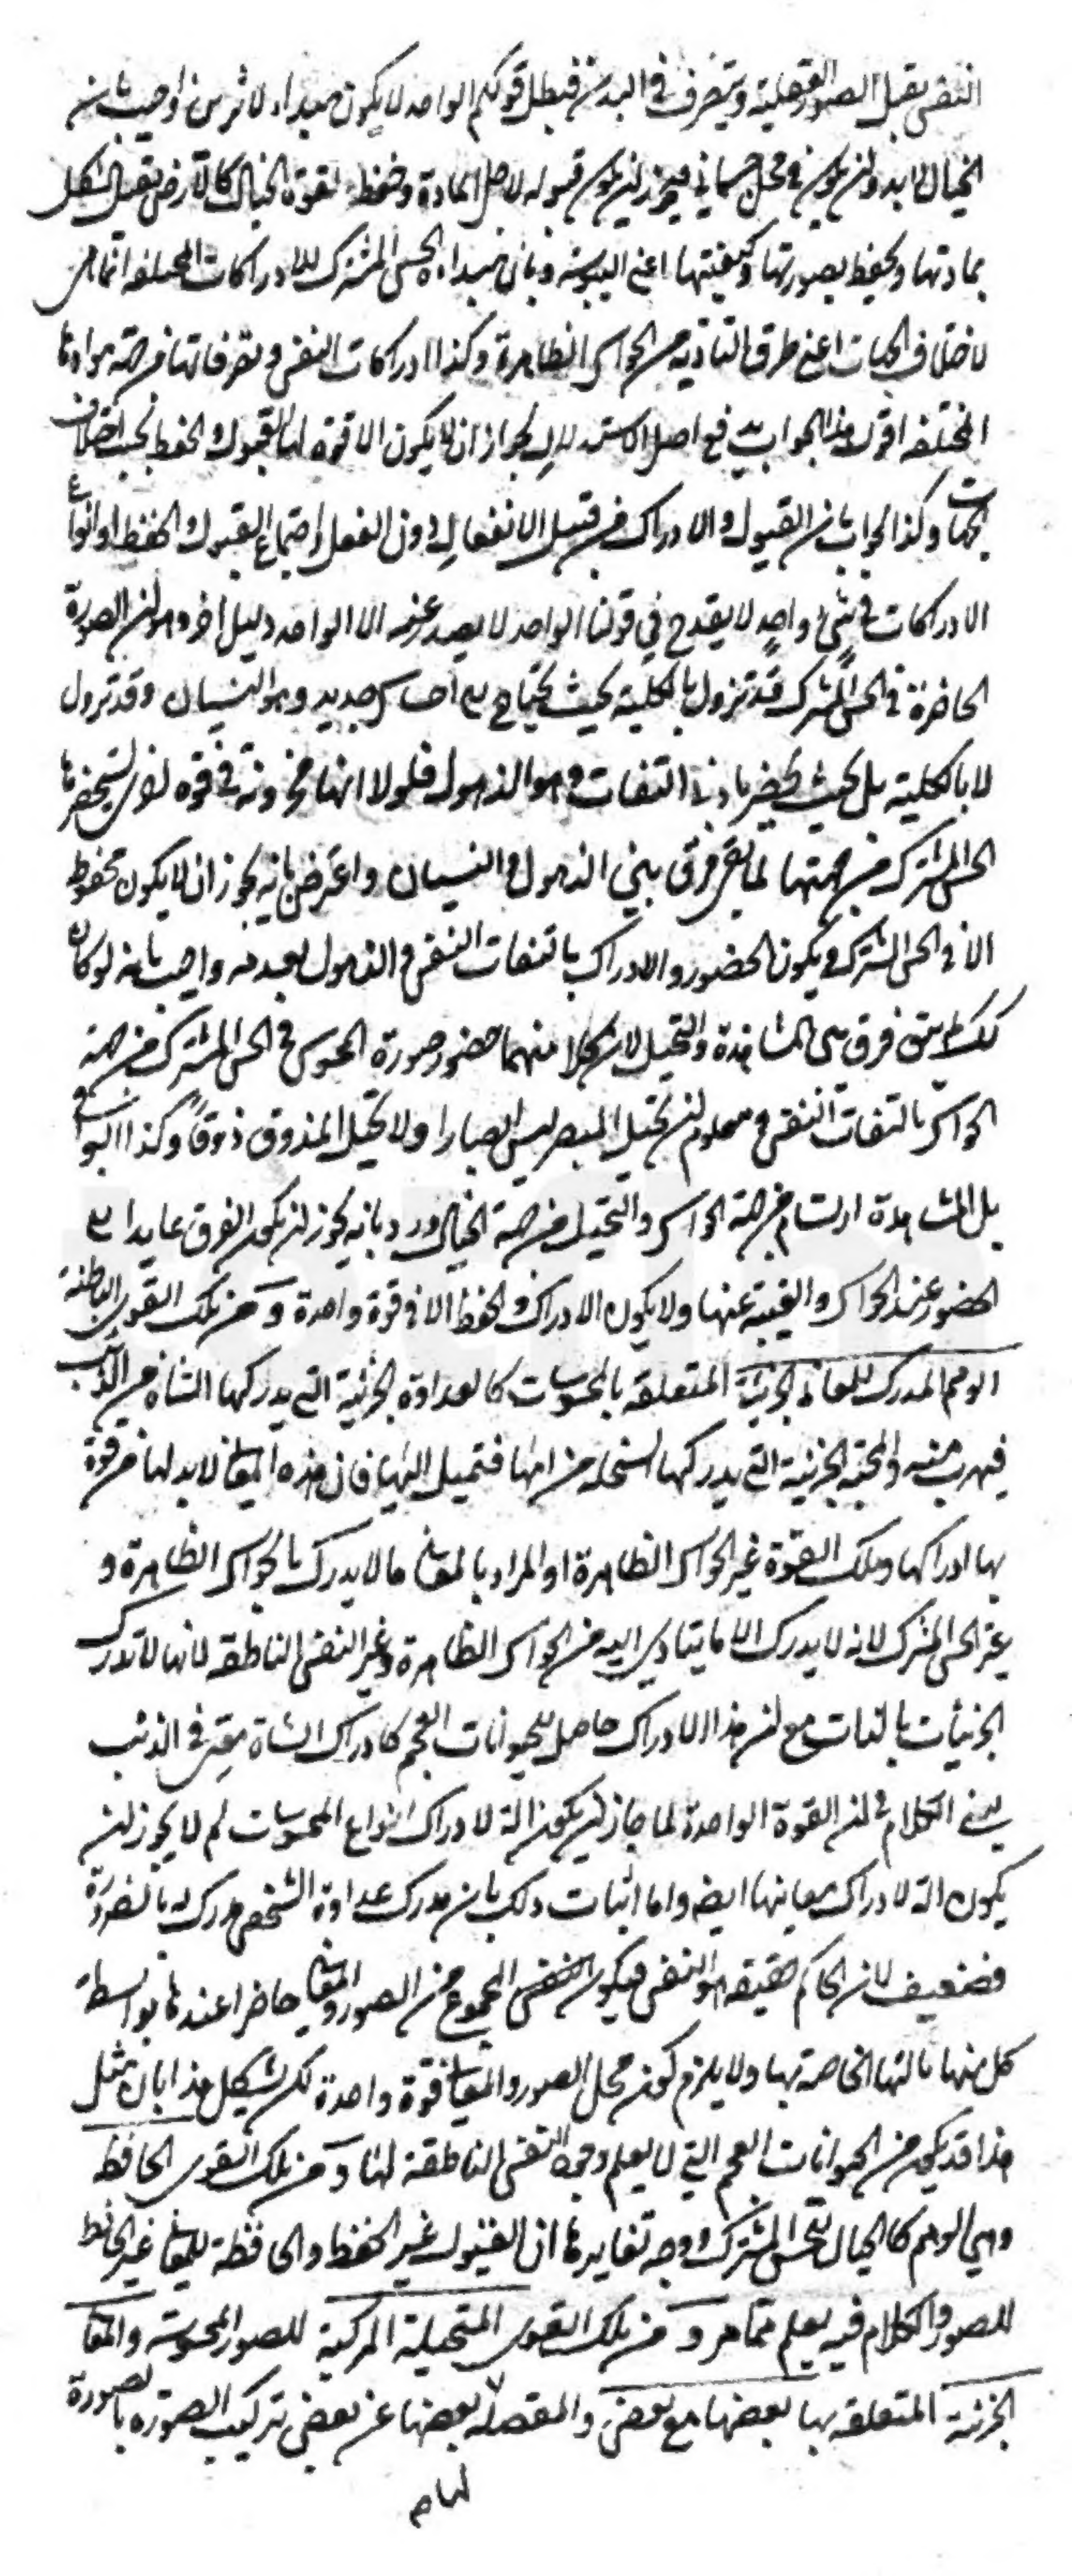 النفس يقبل الصور العقلية ويتصرف في البدن فبطل قولكم الواحد لا يكون مبداء لاثرين اجيب بان
الخيال لابد وان يكون في محل جسماني فيجوز ان يكون قبوله لاجل المادة وحفظه لقوة الخيال كالارض يقبل الشكل
بمادتها ويحفظ بصورتها وكيفيتها اعني اليبوسة وبان مبداء الحس المشترك للادراكات المختلفة انما هي
لاختلاف الجهات اعني طرق التأدية من الحواس الظاهرة وكذا ادراكات النفس وتصرفاتها من جهة
المختلفة اقول هذا الجواب يدفع اصل الاستدلال لجواز ان لا يكون الا قوة لها القبول والحفظ بحسب اختلاف
الجهات وكذا الجواب بان القبول والادراك من قبيل الانفعال دون الفعل اجتماع القبول والحفظ او انواع
الادراكات في شيء واحد لا يقدح في قولنا الواحد لا يصدر عنه الا الواحد دليل اخر وهو ان الصورة
الحاضرة في الحس المشترك قد تزول بالكلية بحيث يحتاج الى احساس جديد وهو النسيان وقد تزول
لا بالكلية بل بحيث يحضر بادنى التفات وهو الذهول فلولا انها مخزونة في قوة اخرى يستحضرها
الحس المشترك من جهتها لما بقي فرق بين الذهول والنسيان واعترض بانه يجوز ان لا يكون محفوظ
الا في الحس المشترك ويكون الحضور والادراك بالتفات النفس والذهول بعدمه واجيب بانه لو كان
كذلك لم يبق فرق بين المشاهدة والتخيل لان كلا منهما حضور صورة المحسوس في الحس المشترك من جهة
الحواس بالتفات النفس ومعلوم ان تخيل المبصر ليس ابصارا ولا تخيل المذوق ذوقا وكذا البواقي
بل المشاهدة ارتسام من جهة الحواس والتخيل من جهة الخيال ورد بانه يجوز ان يكون الفرق عايدا الى
الحضور عند الحواس والغيبة عنها ولا يكون الادراك والحفظ الا في قوة واحدة ومن تلك القوى الباطنة
الوهم المدرك للمعاني الجزئية المتعلقة بالمحسوسات كالعداوة الجزئية التي يدركها الشاة من الذئب
فيهرب منه والمحبة الجزئية التي يدركها السخلة من امها فتميل اليها فان هذه المعاني لابد لها من قوة
بها ادراكها وتلك القوة غير الحواس الظاهرة اذ المراد بالمعاني ما لا يدرك بالحواس الظاهرة و
غير الحس المشترك لانه لا يدرك الا ما يتادى اليه من الحواس الظاهرة وغير النفس الناطقة لانها لا تدرك
الجزئيات بالذات مع ان هذا الادراك حاصل للحيوانات العجم كادراك الشاة معنى في الذئب
بقي الكلام في ان القوة الواحدة لما جاز ان يكون الة لادراك انواع المحسوسات لم لا يجوز ان
يكون الة لادراك معانيها ايضا واما اثبات ذلك بان مدرك عداوة الشخص مدرك له بالضرورة
فضعيف لان الحاكم حقيقة هو النفس فيكون المجموع من الصور والمعاني حاضرا عندها بواسطة
كل منها بالتها الخاصة بها ولا يلزم كون محل الصور والمعاني قوة واحدة لكن يشكل هذا بان مثل
هذا قد يكون من الحيوانات العجم التي لا يعلم وجود النفس الناطقة لها ومن تلك القوى الحافظة
وهي للوهم كالخيال للحس المشترك ووجه تغايرها ان القبول غير الحفظ والحافظة للمعاني غير الحافظ
للصور والكلام فيه يعلم مما مر ومن تلك القوى المتخيلة المركبة للصور المحسوسة والمعاني
الجزئية المتعلقة بها بعضها مع بعض والمفصلة بعضها عن بعض تركيب الصورة بالصورة